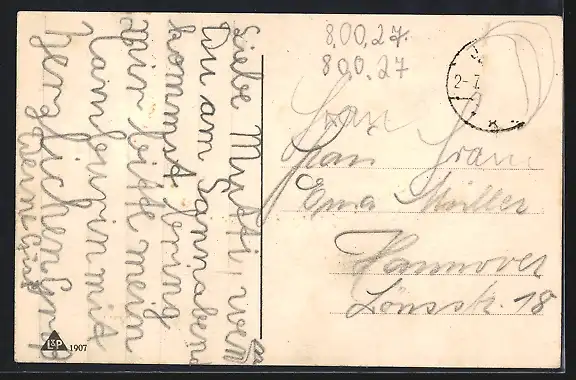 Liebe Mutti, wen
Du am Sonnabend
kommst bring
mir bitte mein
mit
herzlichen Gruß
8.00.27.
800.27
2-7.
Frau
Frau
Erna Müller
Hannover
Lönsstr. 18
L&P 1907